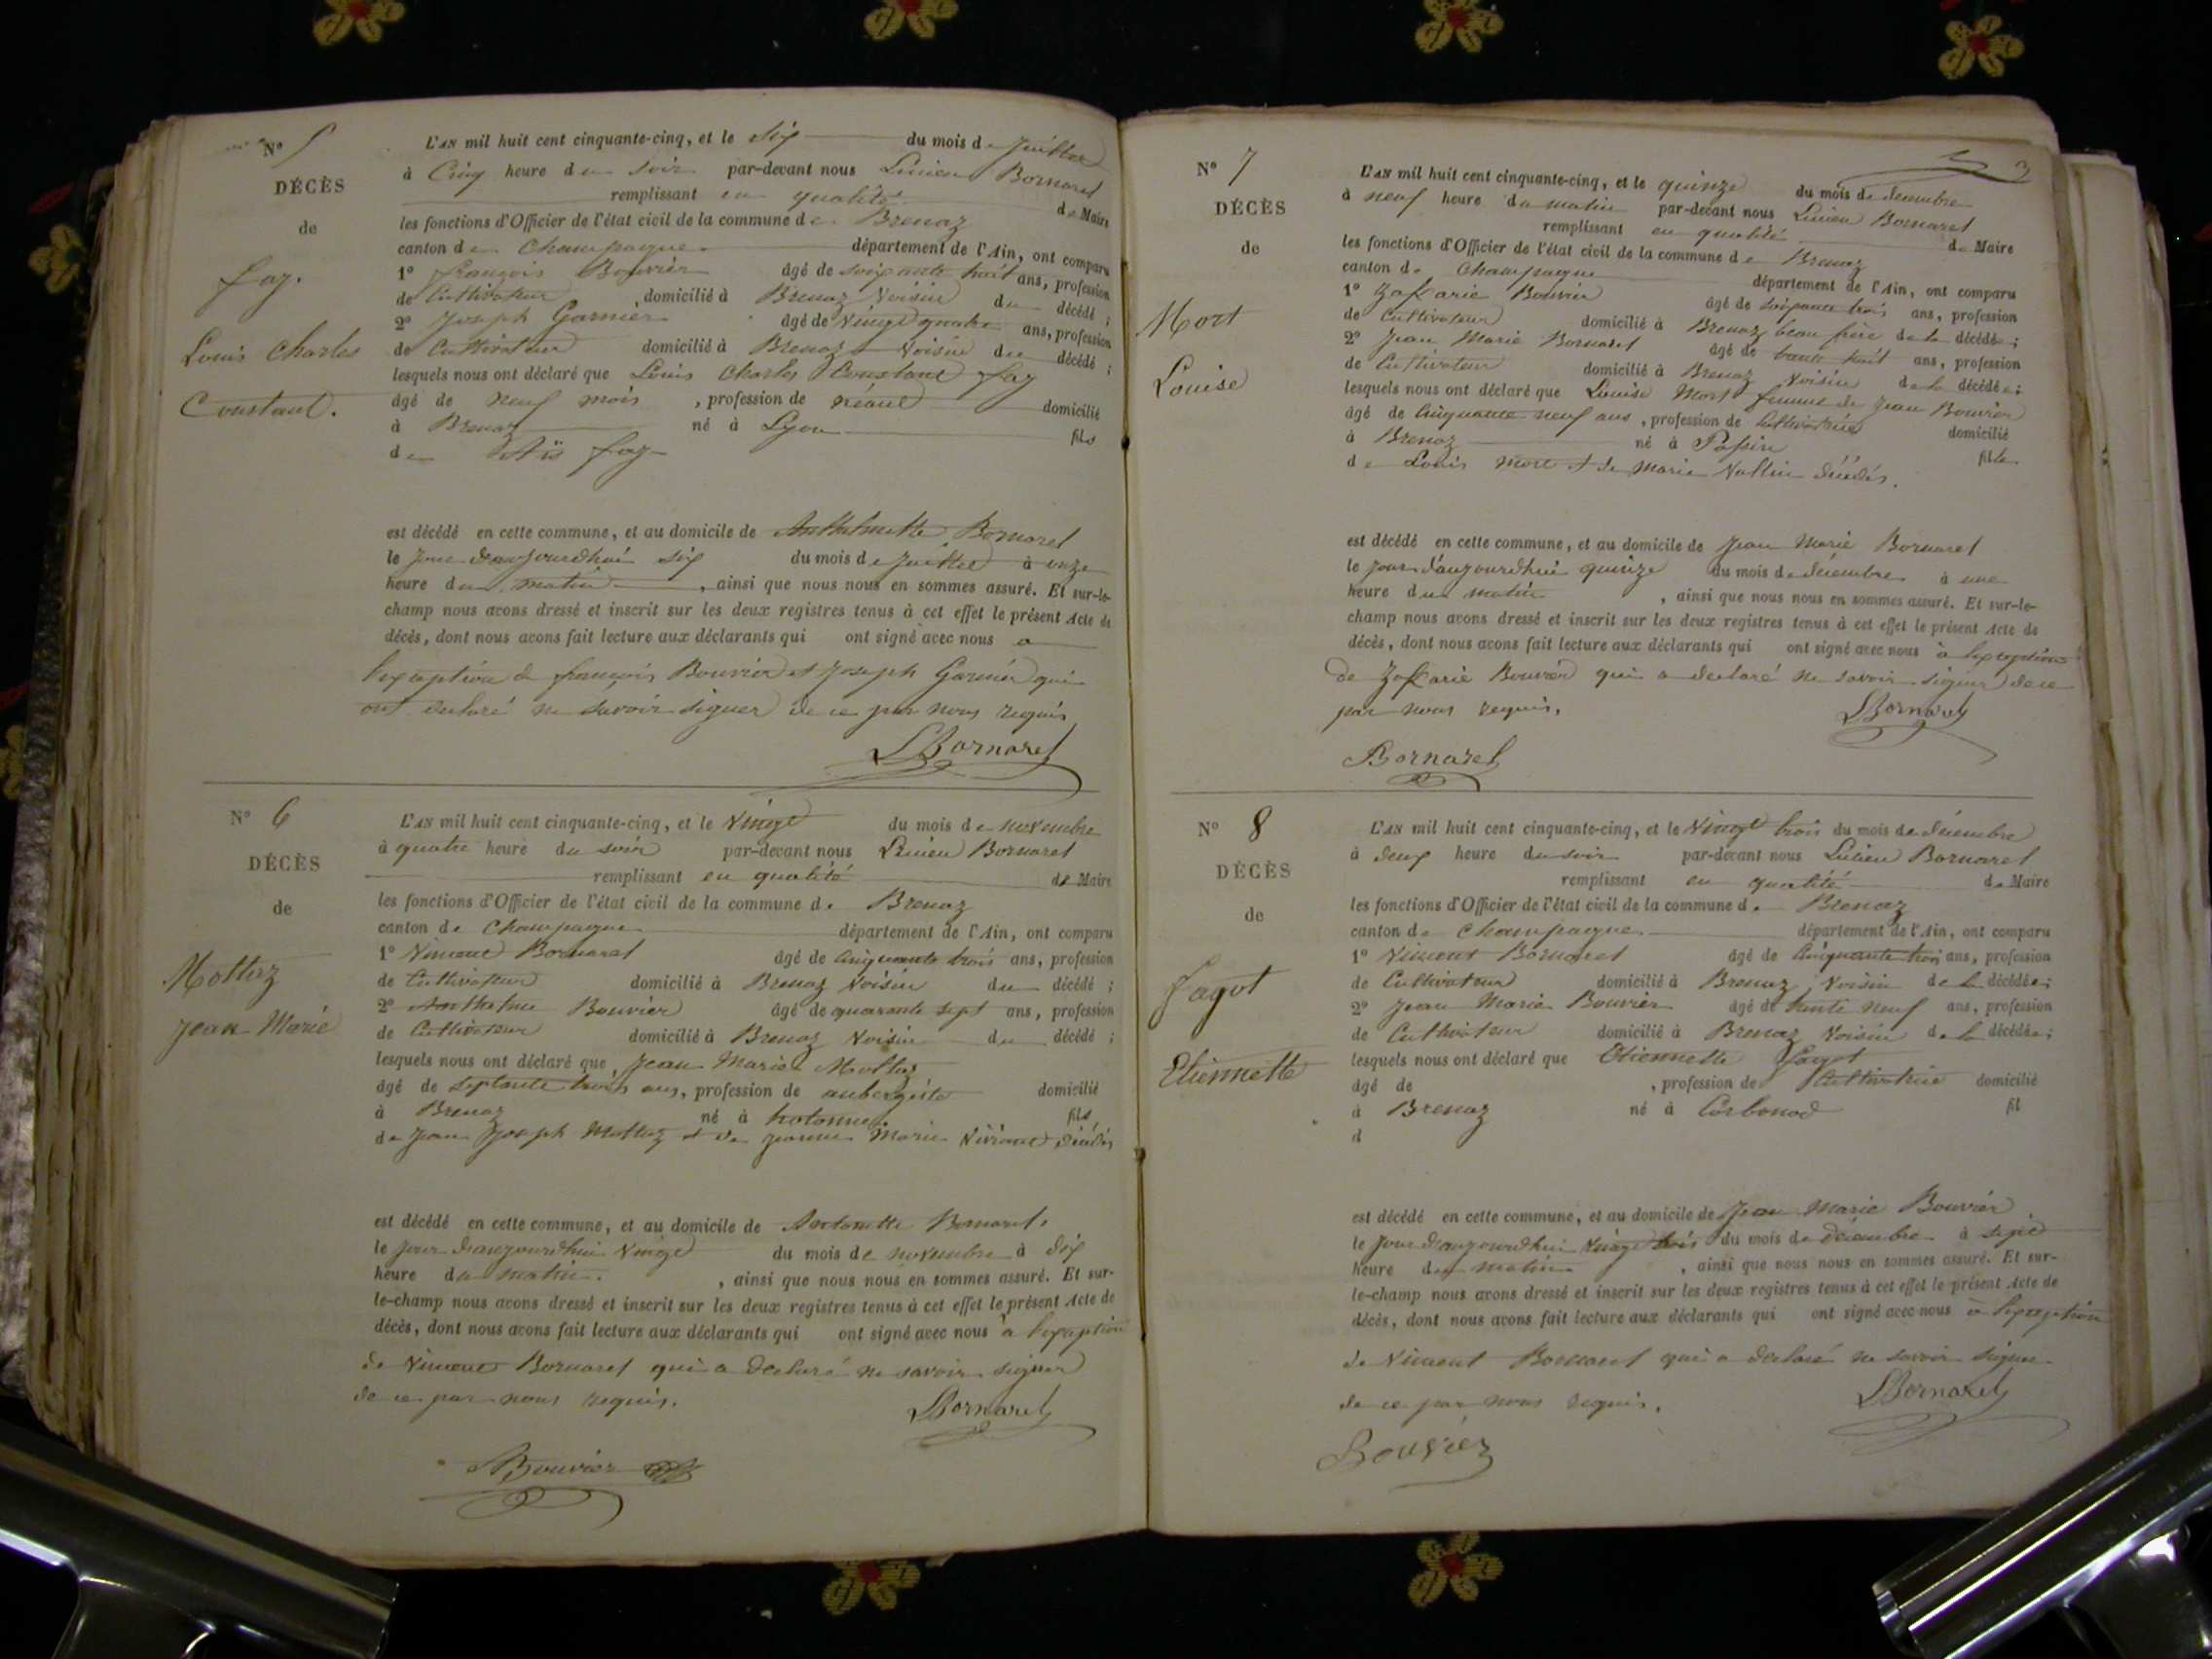 N° 5
DÉCÈS
de
fay.
Louis Charles
Constant.
L'AN mil huit cent cinquante-cinq, et le Six du mois de Juillet
à Cinq heure du soir par-devant nous Lucien Bornarel
remplissant en qualité de Maire
les fonctions d'Officier de l'état civil de la commune de Brenaz
canton de Champagne département de l'Ain, ont comparu
1° françois Bouvier âgé de soixante huit ans, profession
de Cultivateur, domicilié à Brenaz Voisin du décédé ;
2° Joseph Garnier âgé de Vingt quatre ans, profession
de Cultivateur domicilié à Brenaz Voisin du décédé ;
lesquels nous ont déclaré que Louis Charles Constant fay
âgé de neuf mois, profession de néant domicilié
à Brenaz né à Lyon fils
de fay
est décédé en cette commune, et au domicile de Anthelmette Bornarel
le Jour d'aujourdhui Six du mois de Juillet à onze
heure du matin, ainsi que nous nous en sommes assuré. Et sur-le-
champ nous avons dressé et inscrit sur les deux registres tenus à cet effet le présent Acte de
décès, dont nous avons fait lecture aux déclarants qui ont signé avec nous a
l'exception de françois Bouvier et Joseph Garnier qui
ont declaré ne savoir signer de ce par nous requis
LBornarel
N° 6
DÉCÈS
de
Mottaz
Jean Marie
L'AN mil huit cent cinquante-cinq, et le Vingt du mois de novembre
à quatre heure du soir par-devant nous Lucien Bornarel
remplissant en qualité de Maire
les fonctions d'Officier de l'état civil de la commune de Brenaz
canton de Champagne département de l'Ain, ont comparu
1° Vincent Bornarel âgé de Cinquante trois ans, profession
de Cultivateur domicilié à Brenaz Voisin du décédé ;
2° Anthelme Bouvier âgé de quarante sept ans, profession
de Cultivateur domicilié à Brenaz Voisin du décédé ;
lesquels nous ont déclaré que Jean Marie Mottaz
âgé de Septante trois ans, profession de aubergiste domicilié
à Brenaz né à hotonnes fils
de Jean Joseph Mottaz et de Jeanne Marie décédés
est décédé en cette commune, et au domicile de Antoinette Bornarel,
le Jour d'aujourdhui Vingt du mois de novembre à dix
heure du matin, ainsi que nous nous en sommes assuré. Et sur-
le-champ nous avons dressé et inscrit sur les deux registres tenus à cet effet le présent Acte de
décès, dont nous avons fait lecture aux déclarants qui ont signé avec nous a l'exception
de Vincent Bornarel qui a declaré ne savoir signer
de ce par nous requis.
LBornarel
ABouvier
3
N° 7
DÉCÈS
de
Mort
Louise
L'AN mil huit cent cinquante-cinq, et le quinze du mois de decembre
à neuf heure du matin par-devant nous Lucien Bornarel
remplissant en qualité de Maire
les fonctions d'Officier de l'état civil de la commune de Brenaz
canton de Champagne département de l'Ain, ont comparu
1° Zakarie Bouvier âgé de soixante trois ans, profession
de Cultivateur domicilié à Brenaz beau frère de la décédée ;
2° Jean Marie Bornarel âgé de trente huit ans, profession
de Cultivateur domicilié à Brenaz Voisin de la décédée ;
lesquels nous ont déclaré que Louise Mort femme de Jean Bouvier
âgé de Cinquante neuf ans, profession de Cultivatrice domicilié
à Brenaz né à Passin fille
de Louis mort et de Marie Vallin décédés.
est décédé en cette commune, et au domicile de Jean Marie Bornarel
le Jour d'aujourdhui quinze du mois de decembre à une
heure du matin, ainsi que nous nous en sommes assuré. Et sur-le-
champ nous avons dressé et inscrit sur les deux registres tenus à cet effet le présent Acte de
décès, dont nous avons fait lecture aux déclarants qui ont signé avec nous a l'exception
de Zakarie Bouvier qui a declaré ne savoir signer de ce
par nous requis.
LBornarel
Bornarel
N° 8
DÉCÈS
de
Fagot
Etiennette
L'AN mil huit cent cinquante-cinq, et le Vingt trois du mois de decembre
à deux heure du soir par-devant nous Lucien Bornarel
remplissant en qualité de Maire
les fonctions d'Officier de l'état civil de la commune de Brenaz
canton de Champagne département de l'Ain, ont comparu
1° Vincent Bornarel âgé de Cinquante trois ans, profession
de Cultivateur domicilié à Brenaz Voisin de la décédée ;
2° Jean Marie Bouvier âgé de trente neuf ans, profession
de Cultivateur domicilié à Brenaz Voisin de la décédée ;
lesquels nous ont déclaré que Etiennette Fagot
âgé de , profession de Cultivatrice domicilié
à Brenaz né à Corbonod fil
d
est décédé en cette commune, et au domicile de Jean Marie Bouvier
le Jour d'aujourdhui Vingt trois du mois de Décembre à sept
heure du matin, ainsi que nous nous en sommes assuré. Et sur-
le-champ nous avons dressé et inscrit sur les deux registres tenus à cet effet le présent Acte de
décès, dont nous avons fait lecture aux déclarants qui ont signé avec nous a l'exception
de Vincent Bornarel qui a declaré ne savoir signer
de ce par nous requis.
LBornarel
Bouvier